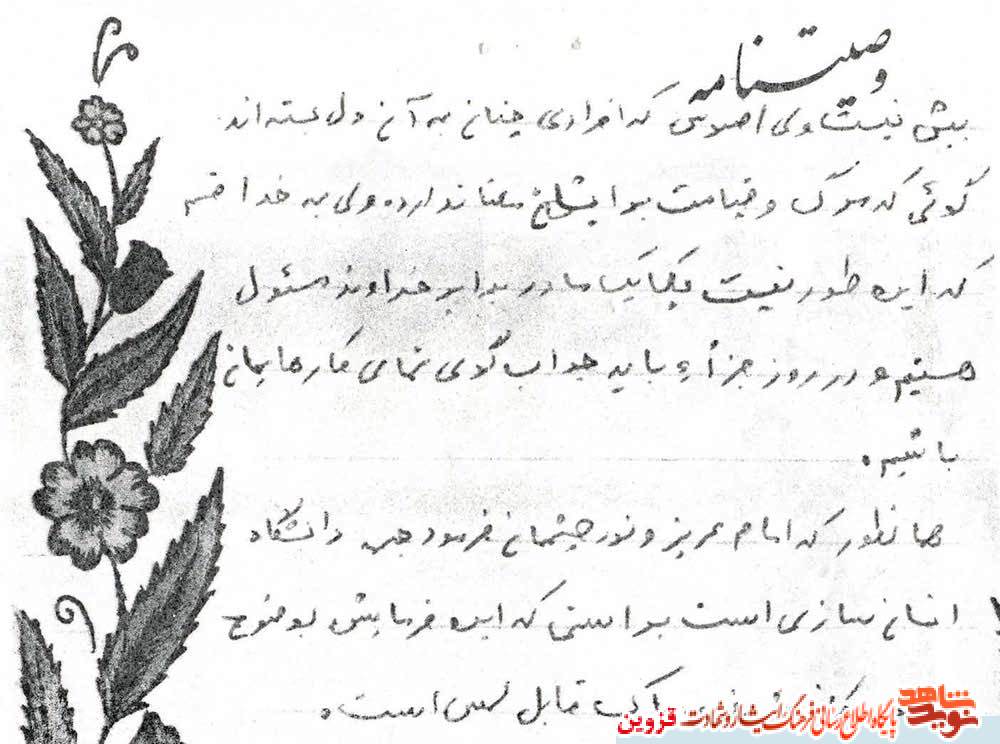 وصیتنامه
بیش نیست ولی افسوس که افرادی چنان به آن دل بسته‌اند
گوئی که مرگ و قیامت برایشان معنا ندارد ولی به خدا قسم
که این طور نیست یکایک ما در برابر خداوند مسئول
هستیم و در روز جزأ باید جواب گوی تمامی کارهایمان
باشیم.
همانطور که امام عزیز و نور چشمان فرمود جبهه دانشگاه
انسان سازی است براستی که این فرمایش بوضوح
قابل لمس است.
نوید شاهد
پایگاه اطلاع رسانی فرهنگ ایثار و شهادت قزوین